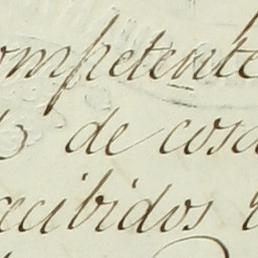 ompetente
de cosa
ecibidos